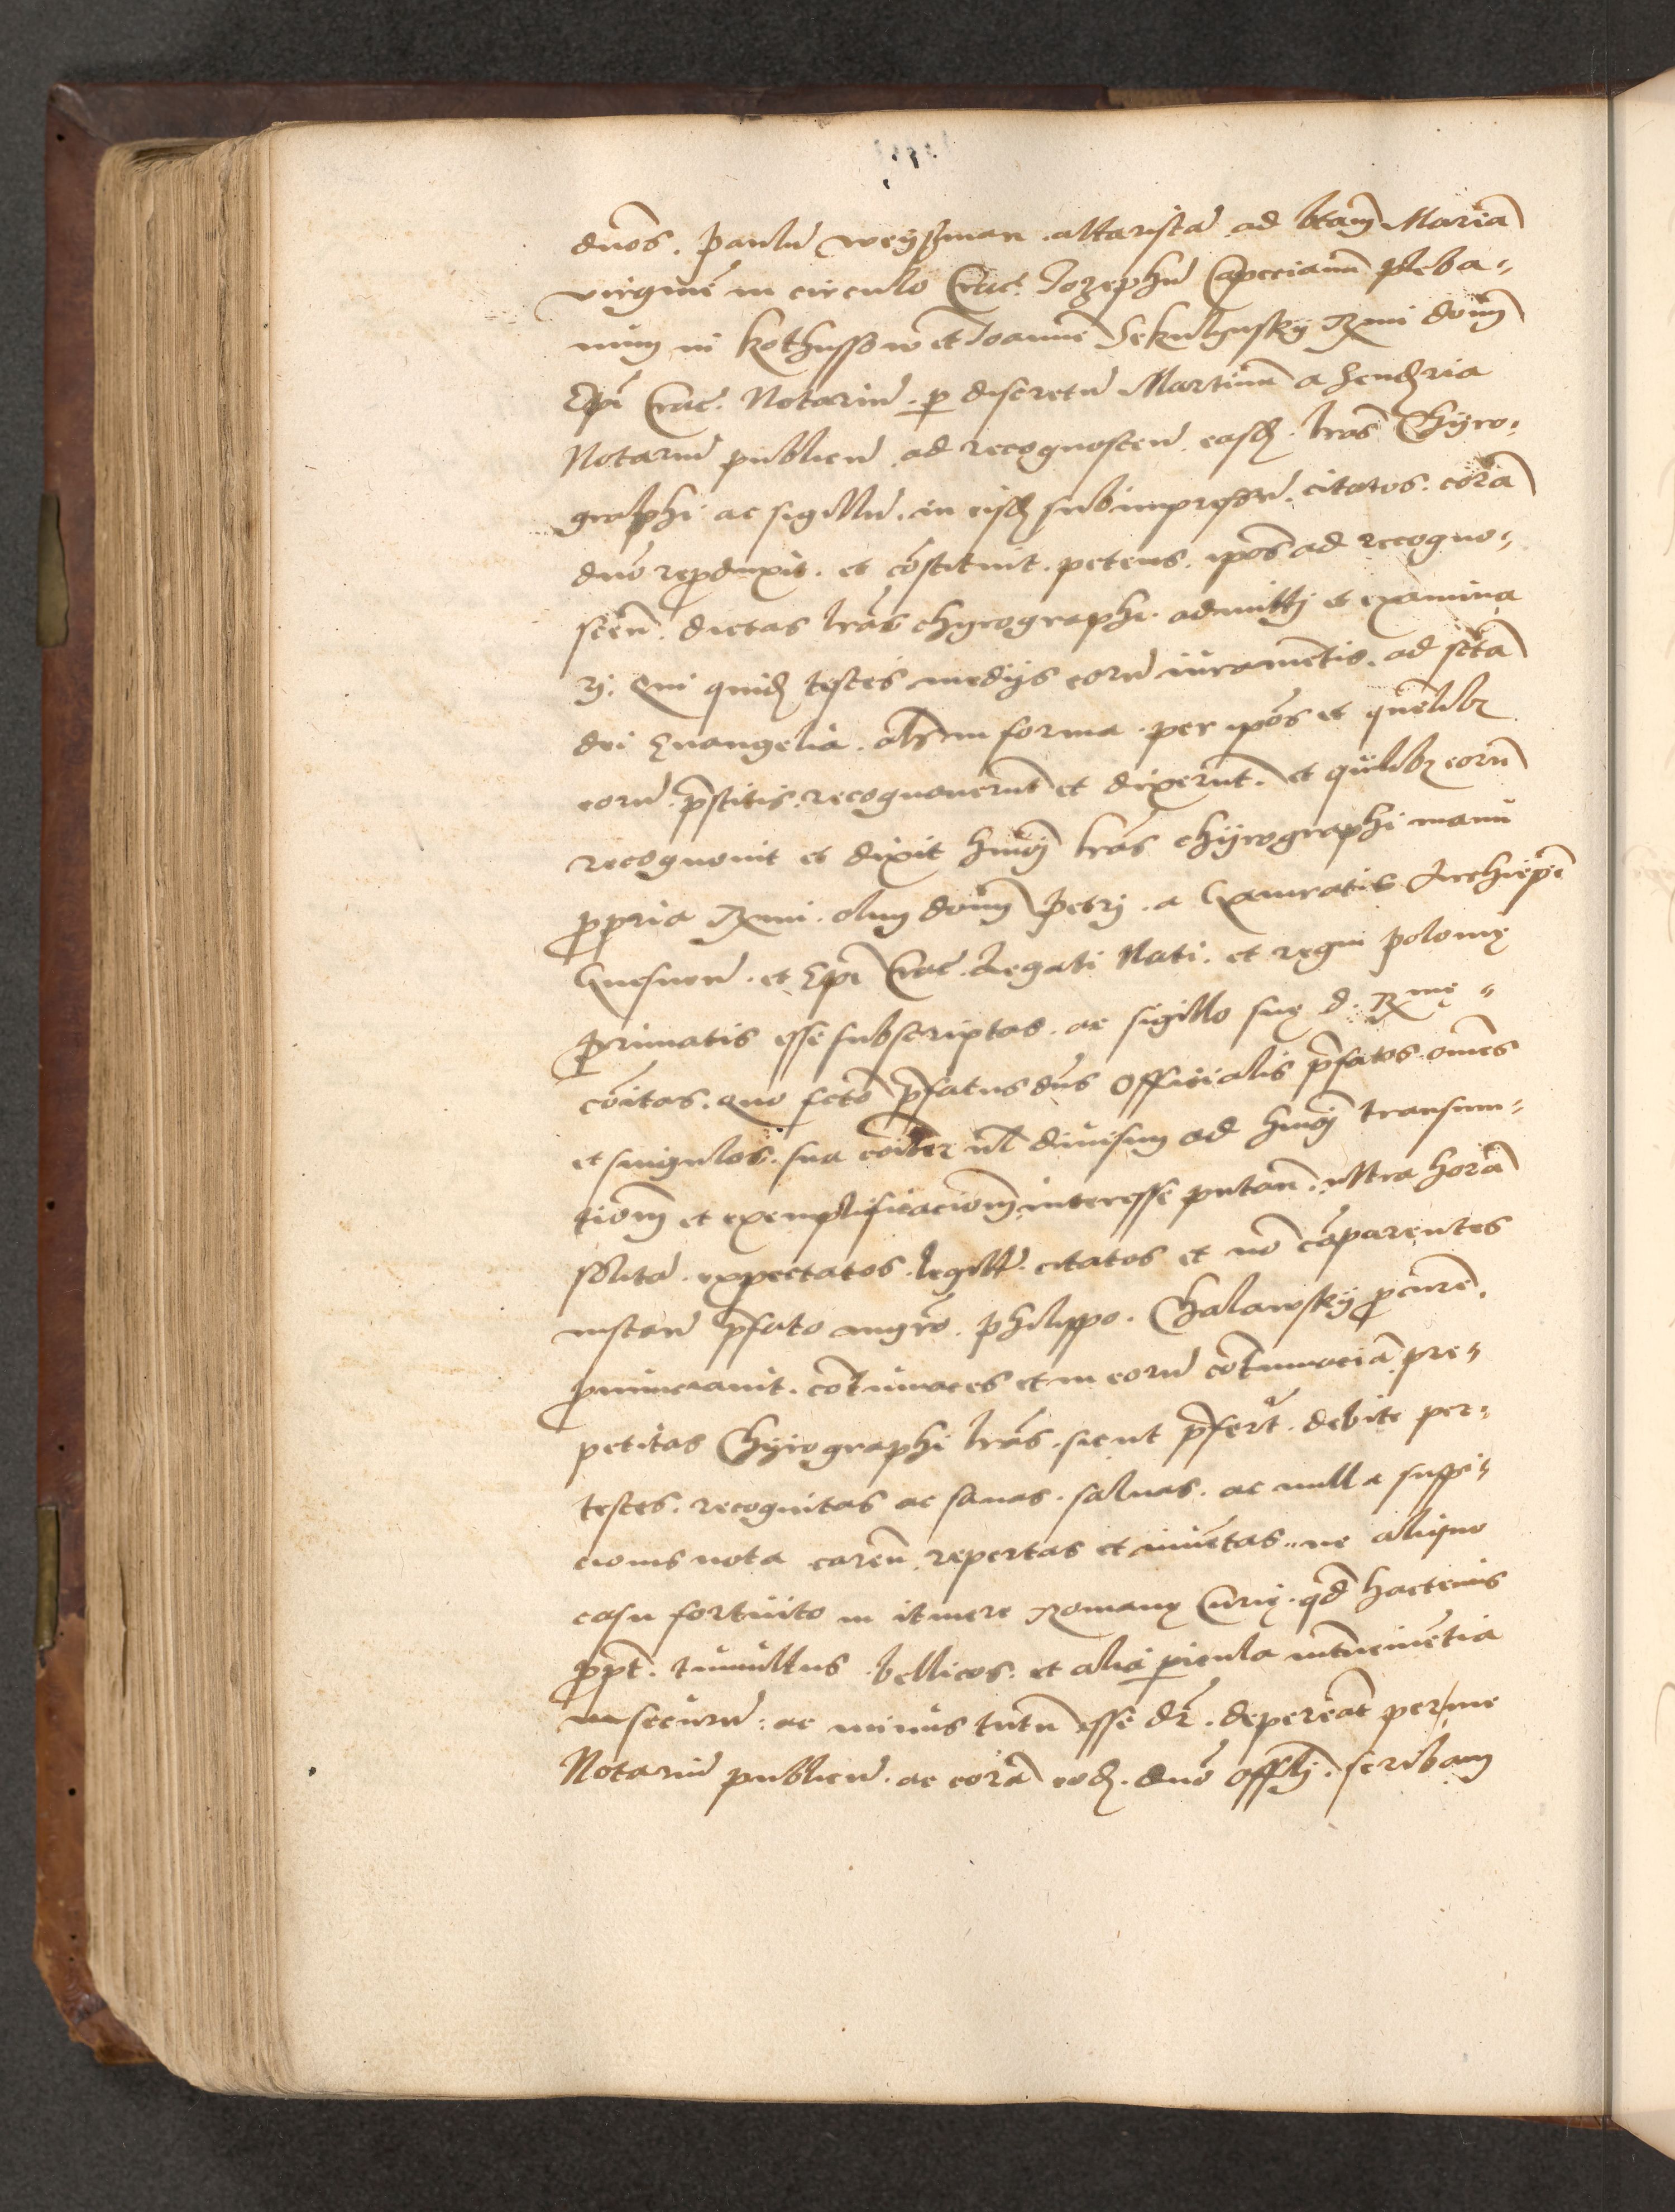 dnos. Paulu weyßman altarista ad btam Maria
virgine in circulo Crac. Iozephu Capecianu pleba-
num in Kothussow et Ioanne Sekulynsky Rmi domi
Epi Crac. Notariu p discretu Martinu a Hendzria
Notariu publicu ad recognoscen easd. lras Chyro-
graphi ac sigillu in eisd subimpressu. citatos. cora
dno reproduxit. et costituit. petens. ipos ad recogno-
scen. dictas lras chyrographi. admitti et examina
ri. Qui quid testes medijs eoru iuramentis. ad scta
dei Euangelia. als in forma. per ipos et quelibz
eoru. prestitis. recognouerut et dixerut. et quilibz eoru
recognouit et dixit hmoi lras chyrographi manu
propria Rmi. olim domi Petri. a Gamratis Archiepi
Gnesnen. et Epi Crac. Legati Nati. et regni Polonię
Primatis esse subscriptas. ac sigillo suę d. Rmę
coitas. quo fcto prefatus dns Officialis prefatos omes
et singulos. sua coiter vl diuisim ad hmoi transum-
tiom et exemplificaciom interesse putan. ultra hora
solita. expectatos. legittе. citatos et no coparentes
instan prefato mgro. Philippo. Chalawsky procure.
pnunciauit. cotumaces et in eoru cotumacia pre-
petitas Chyrographi lras. sicut prefert. debite per-
testes. recognitas ac sanas. saluas. ac nulla suspi-
cionis nota caren. repertas et inuetas. ne aliquo
casu fortuito in itinere Romanę Curię. qd hactenus
propt. tumultus bellicos. et alia picula interueniẽtia
insecuru: ac minus tutu esse dr. depereat per me
Notariu publicu. ac cora eod. dno offli. scribam